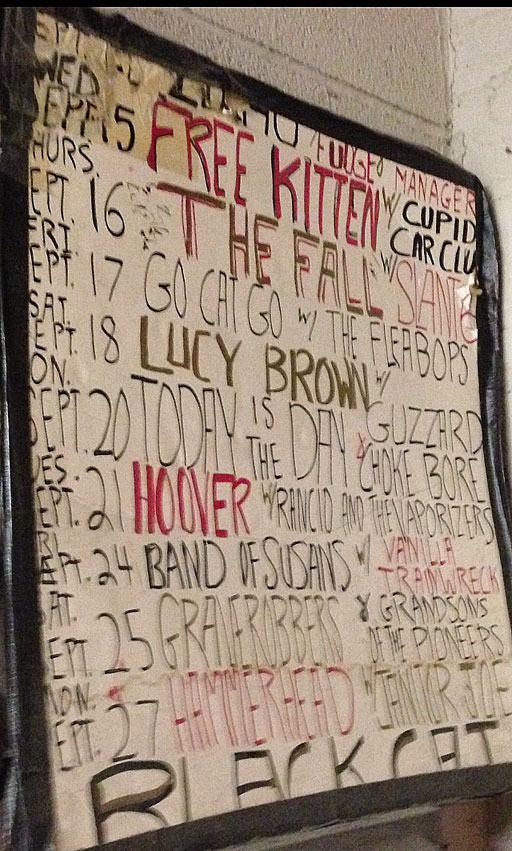 WED
SEPT. 15 FREE KITTEN W/ CUPID
FUDGE & MANAGER
CAR CLU
HURS.
EPT. 16 THE FALL W/ SLANT 6
FRI
EPT. 17 GO CAT GO W/ THE FLEABOPS
SAT.
EPT. 18 LUCY BROWN W/
ON.
SEPT. 20 TODAY IS THE DAY GUZZARD
& CHOKE BORE
ES.
EPT. 21 HOOVER W/ RANCID AND THE VAPORIZERS
RI
EPT. 24 BAND OF SUSANS W/ VANILLA
TRAINWRECK
AT.
EPT. 25 GRAVEROBBERS & GRANDSONS
OF THE PIONEERS
ON.
EPT. 27 HAMMERHEAD W/ JANITOR JOE
BLACK CAT